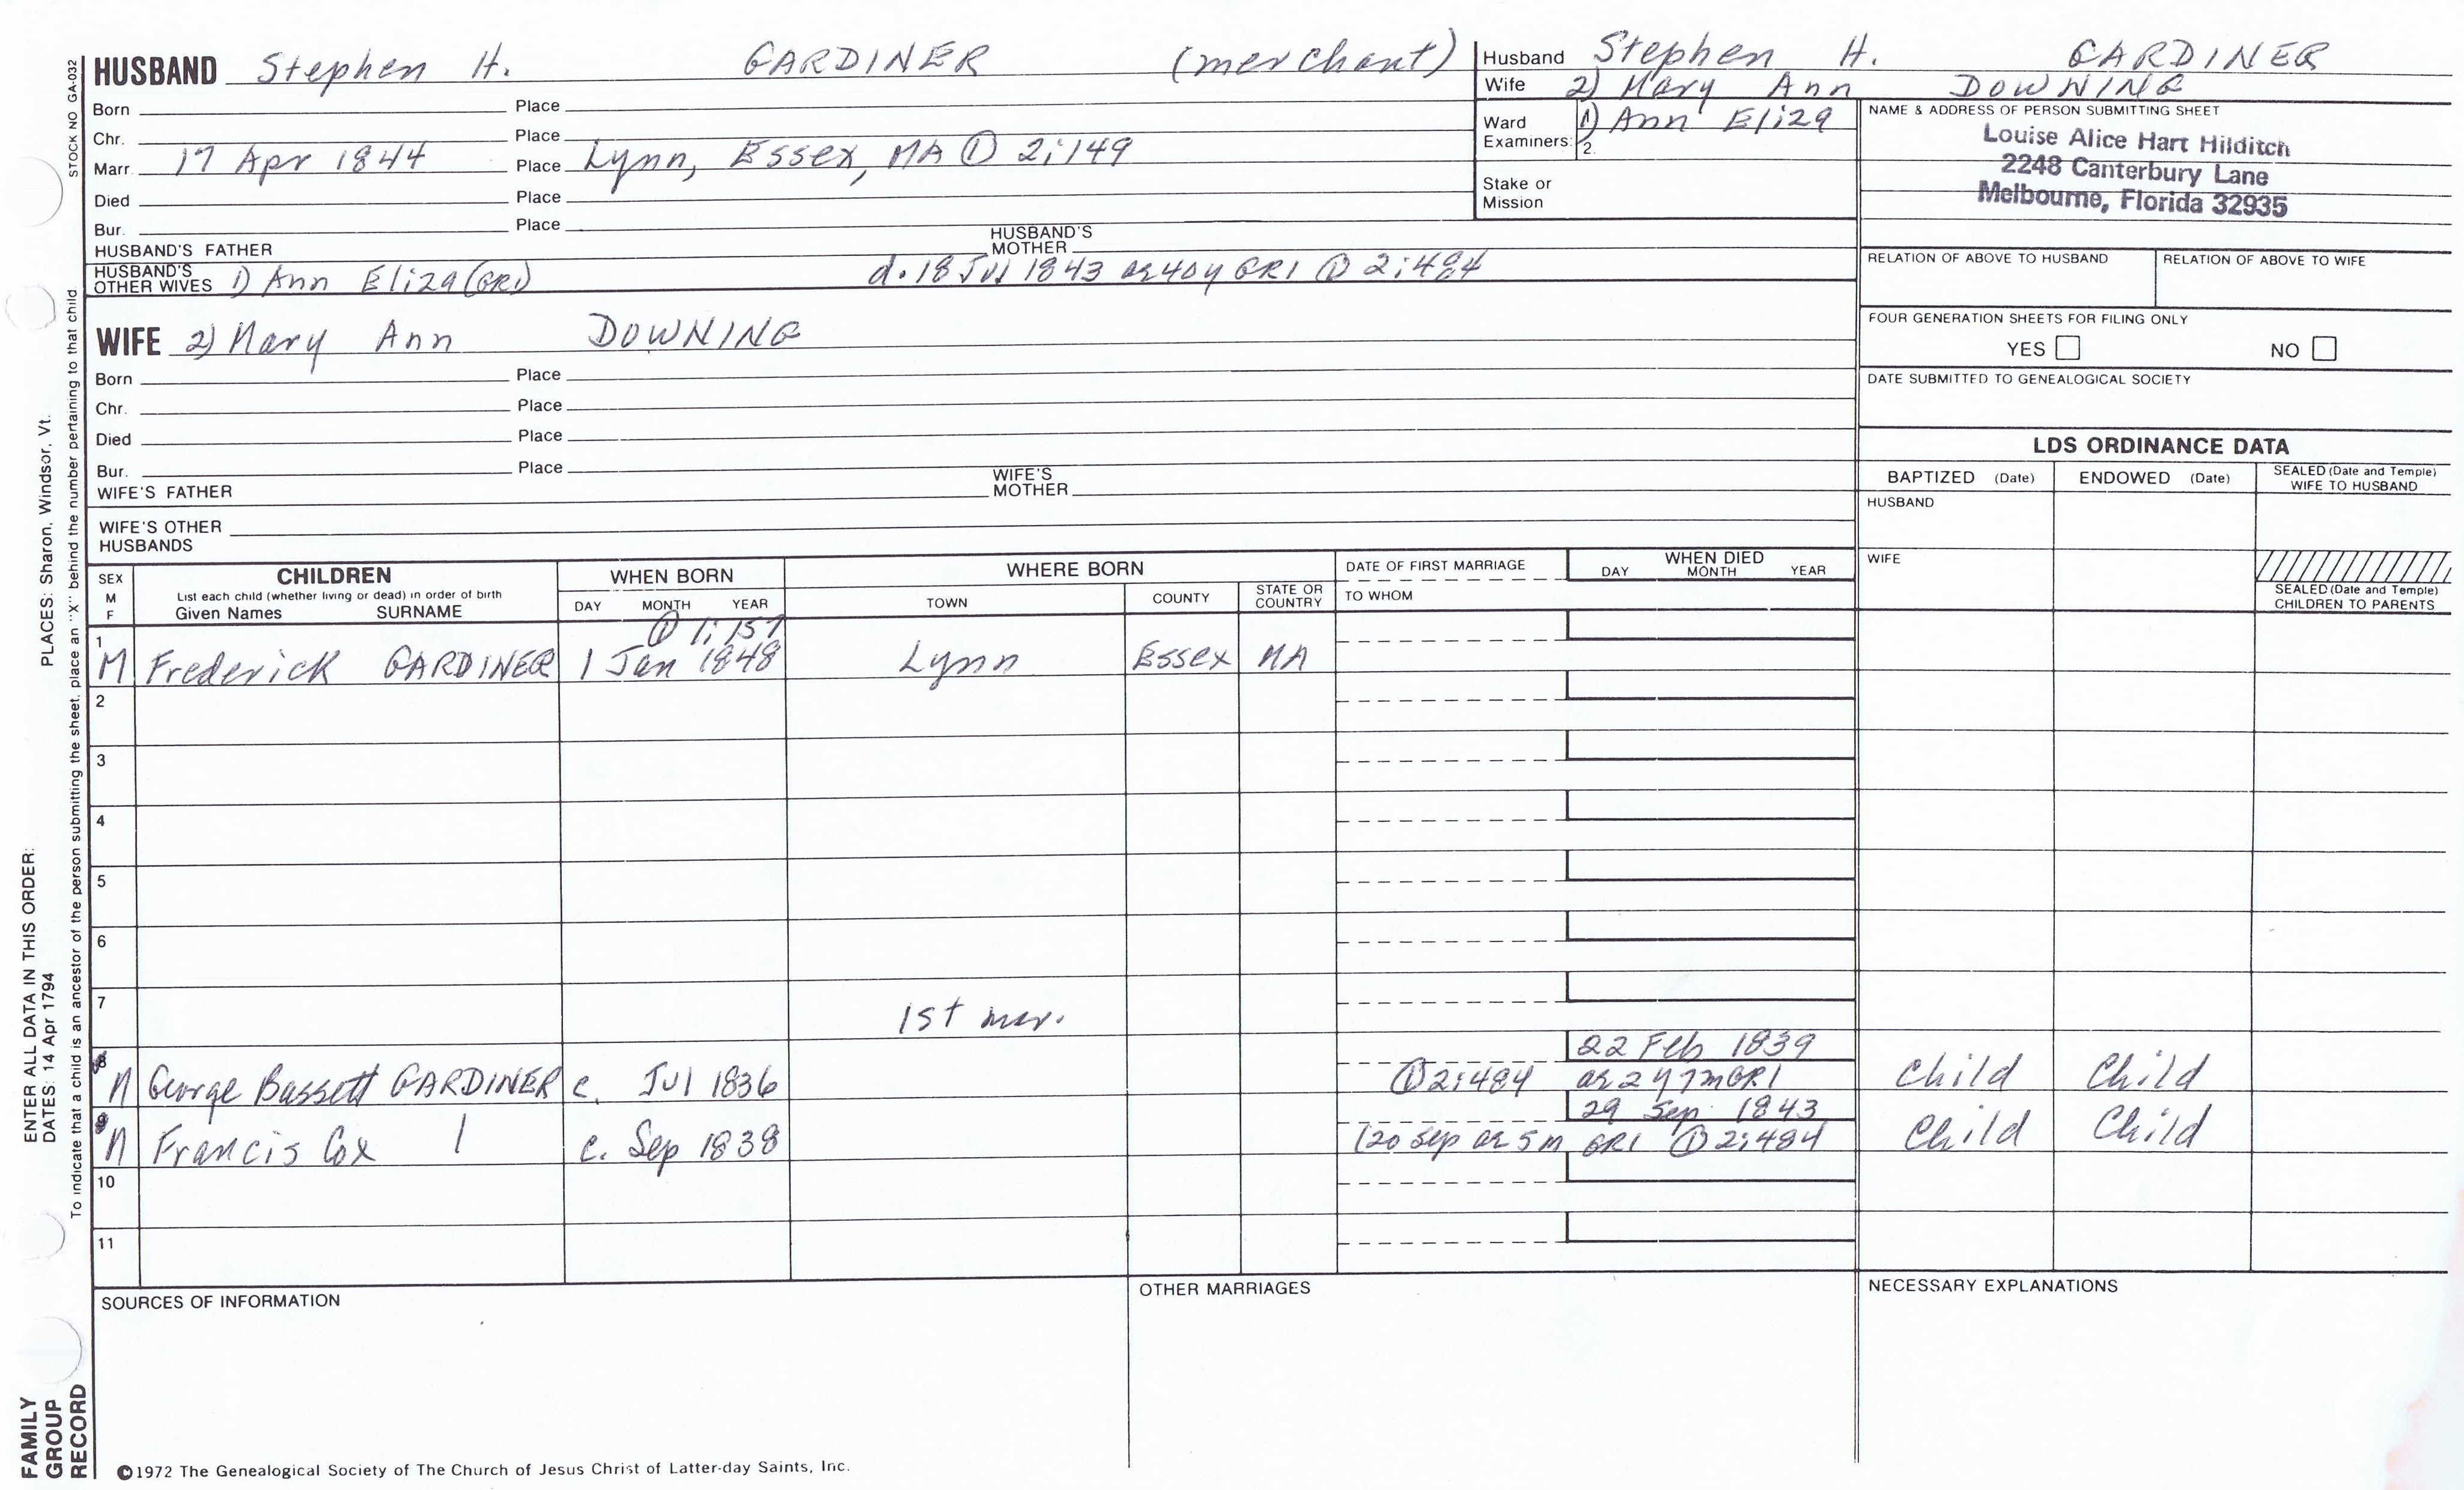 HUSBAND Stephen H. GARDINER (merchant)
Born Place
Chr. Place
Marr. 17 Apr 1844 Place Lynn, Essex, MA ① 2:149
Died Place
Bur. Place
HUSBAND'S FATHER HUSBAND'S MOTHER
HUSBAND'S OTHER WIVES 1) Ann Eliza (GR1) d. 18 Jul 1843 ae 40y GR1 ① 2:484
Husband Stephen H. GARDINER
Wife 2) Mary Ann DOWNING
Ward Examiners: 1) Ann Eliza
2.
Stake or Mission
NAME & ADDRESS OF PERSON SUBMITTING SHEET
Louise Alice Hart Hilditch
2248 Canterbury Lane
Melbourne, Florida 32935
RELATION OF ABOVE TO HUSBAND RELATION OF ABOVE TO WIFE
FOUR GENERATION SHEETS FOR FILING ONLY
YES NO
DATE SUBMITTED TO GENEALOGICAL SOCIETY
WIFE 2) Mary Ann DOWNING
Born Place
Chr. Place
Died Place
Bur. Place
WIFE'S FATHER WIFE'S MOTHER
WIFE'S OTHER HUSBANDS
LDS ORDINANCE DATA
BAPTIZED (Date) ENDOWED (Date) SEALED (Date and Temple) WIFE TO HUSBAND
HUSBAND
WIFE
SEALED (Date and Temple) CHILDREN TO PARENTS
SEX M F
CHILDREN
List each child (whether living or dead) in order of birth
Given Names SURNAME
WHEN BORN
DAY MONTH YEAR
WHERE BORN
TOWN COUNTY STATE OR COUNTRY
DATE OF FIRST MARRIAGE
TO WHOM
WHEN DIED
DAY MONTH YEAR
① 1:157
1 M Frederick GARDINER 1 Jan 1848 Lynn Essex MA
2
3
4
5
6
7 1st mar.
22 Feb 1839
8 M George Bassett GARDINER c. Jul 1836 ① 2:484 ae 2y 7m GR1 Child Child
29 Sep 1843
9 M Francis Cox c. Sep 1838 (20 Sep ae 5m GR1 ① 2:484 Child Child
10
11
SOURCES OF INFORMATION
OTHER MARRIAGES
NECESSARY EXPLANATIONS
©1972 The Genealogical Society of The Church of Jesus Christ of Latter-day Saints, Inc.
STOCK NO GA-032
To indicate that a child is an ancestor of the person submitting the sheet, place an "X" behind the number pertaining to that child
ENTER ALL DATA IN THIS ORDER: PLACES: Sharon, Windsor, Vt.
DATES: 14 Apr 1794
FAMILY
GROUP
RECORD